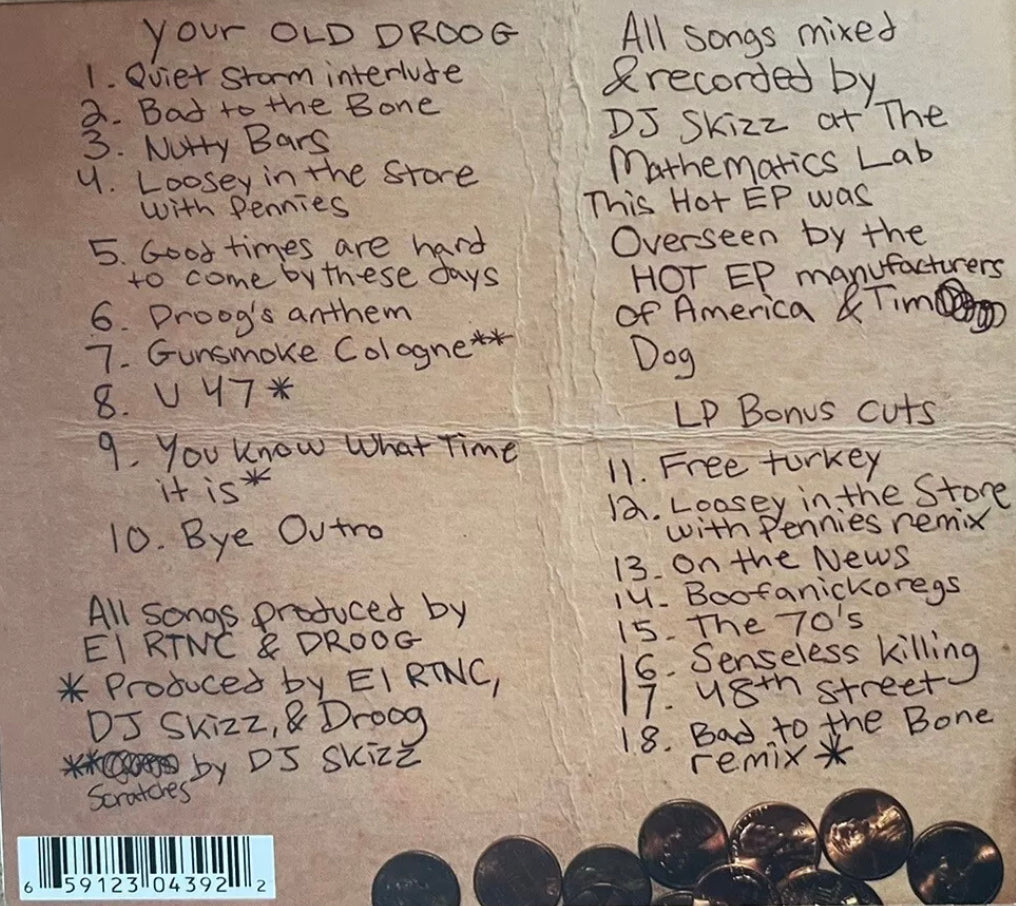 Your OLD DROOG
1. Quiet Storm interlude
2. Bad to the Bone
3. Nutty Bars
4. Loosey in the Store
with Pennies
5. Good times are hard
to come by these days
6. Droog's anthem
7. Gunsmoke Cologne**
8. U 47*
9. You Know What Time
it is*
10. Bye Outro
All Songs produced by
El RTNC & DROOG
* Produced by El RTNC,
DJ Skizz, & Droog
** by DJ Skizz
Scratches
6 59123 04392 2
All Songs mixed
& recorded by
DJ Skizz at The
Mathematics Lab
This Hot EP was
Overseen by the
HOT EP manufacturers
of America & Tim
Dog
LP Bonus cuts
11. Free turkey
12. Loosey in the Store
with Pennies remix
13. On the News
14. Boofanickoregs
15. The 70's
16. Senseless killing
17. 48th street
18. Bad to the Bone
remix *